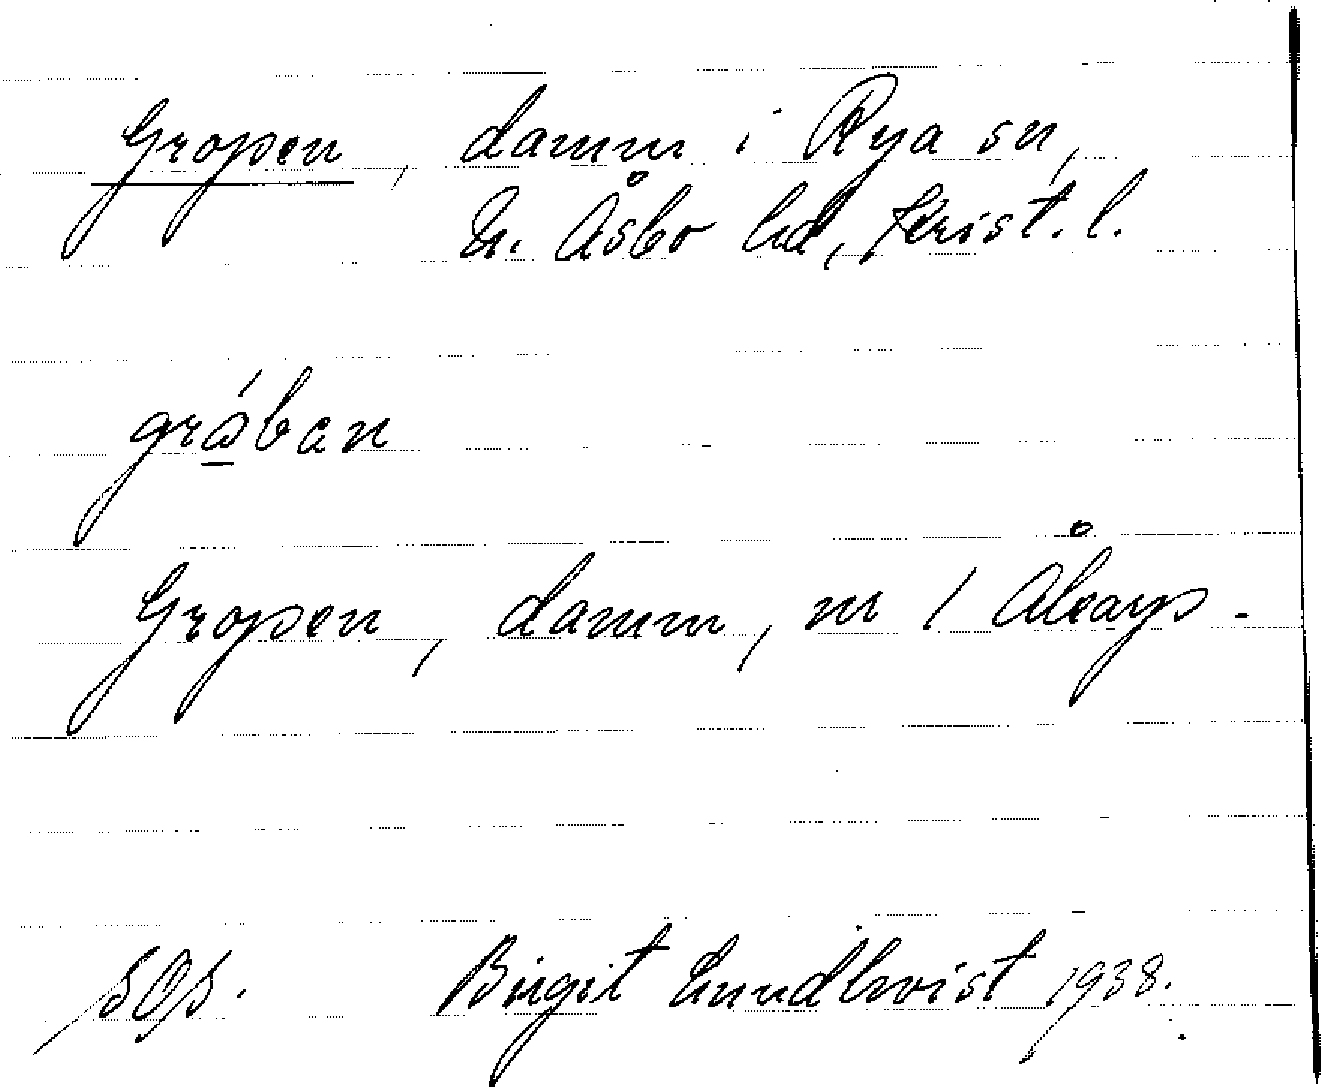 Gropen, damm i Rya sn,
N. Åsbo hd, Krist. l.
gróban
Gropen, damm, nr 1 Åkarp.
Birgit Lundkvist 1938.